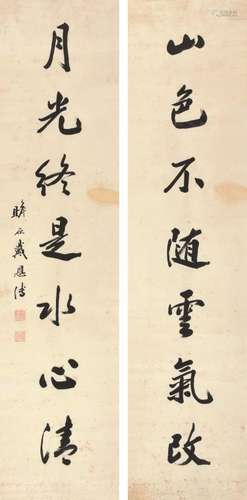 山色不随雲氣改
月光終是水心清
瞻原戴恩溥